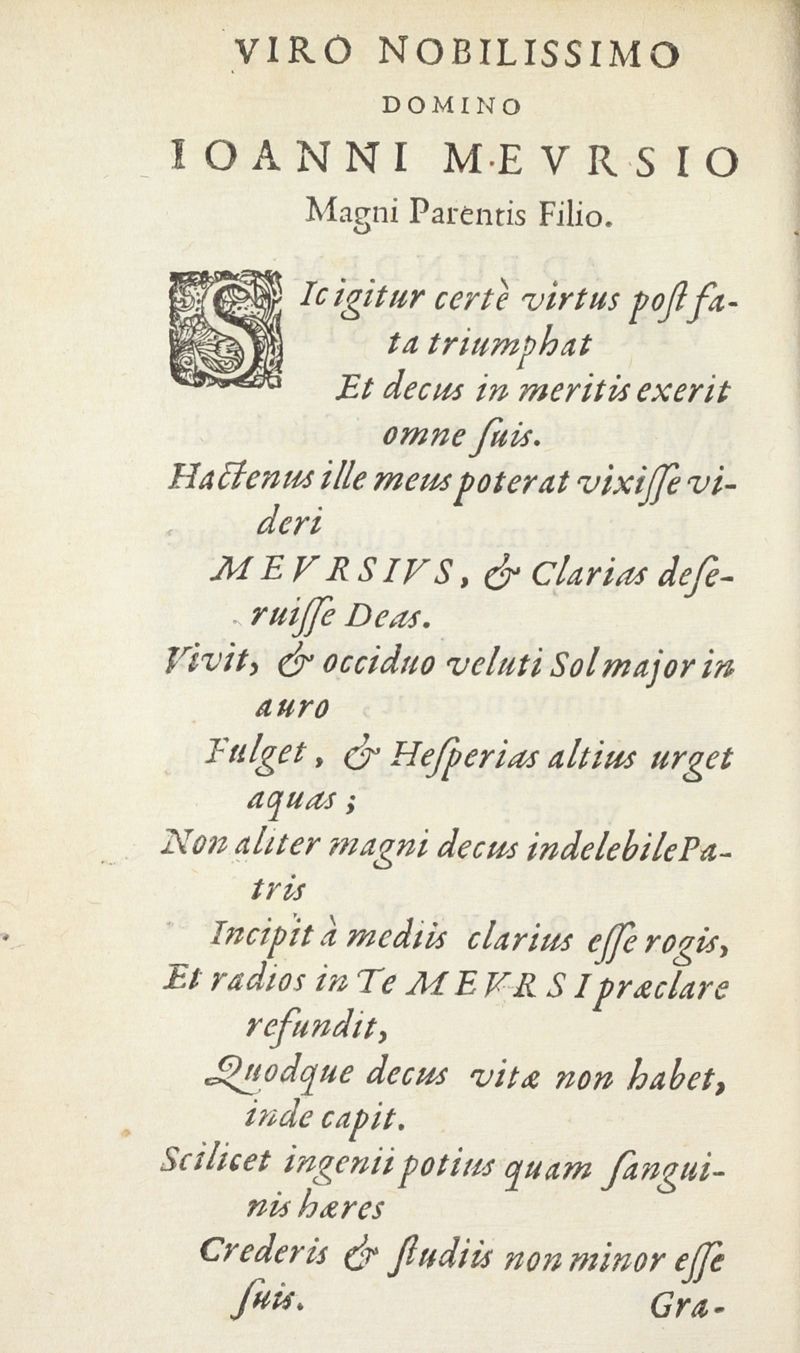 VIRO NOBILISSIMO
DOMINO
IOANNI MEVRSIO
Magni Parentis Filio.
SIc igitur certè virtus post fa-
ta triumphat
Et decus in meritis exerit
omne suis.
Hactenus ille meus poterat vixisse vi-
deri
MEVRSIVS, & Clarias dese-
ruisse Deas.
Vivit, & occiduo veluti Sol major in
auro
Fulget, & Hesperias altius urget
aquas;
Non aliter magni decus indelebile Pa-
tris
Incipit à mediis clarius esse rogis,
Et radios in Te MEVRSI præclare
refundit,
Quodque decus vitæ non habet,
inde capit.
Scilicet ingenii potius quam sangui-
nis hæres
Crederis & studiis non minor esse
suis.
Gra-